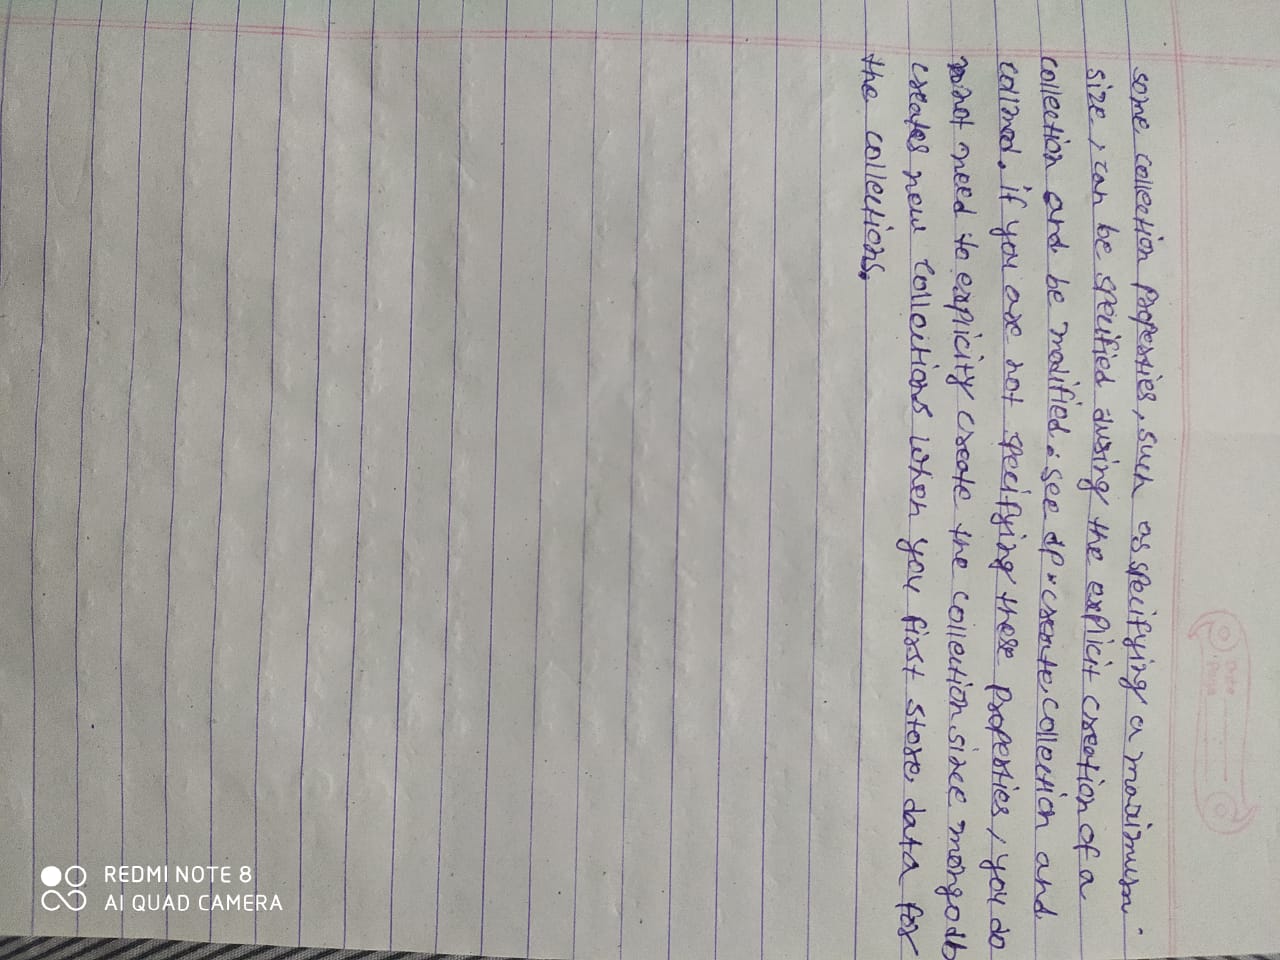 Date
Page
some collection properties, such as specifying a maximum
size, can be specified during the explicit creation of a
collection and be modified. see dp.create collection and
collmod. if you are not specifying these properties, you do
not need to explicity create the collection since mongodb
creates new collections when you first store data for
the collections.
REDMI NOTE 8
AI QUAD CAMERA